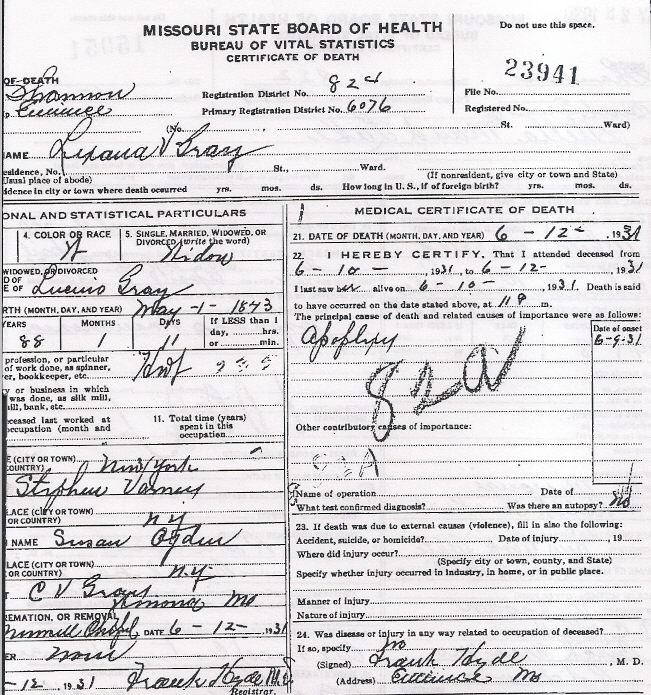 MISSOURI STATE BOARD OF HEALTH
BUREAU OF VITAL STATISTICS
CERTIFICATE OF DEATH
Do not use this space.
23941
OF DEATH
Shannon
Registration District No. 824
File No.
Eminence
Primary Registration District No. 6076
Registered No.
(No. St. Ward)
NAME Lipana V Gray
esidence, No. St., Ward.
Usual place of abode) (If nonresident, give city or town and State)
idence in city or town where death occurred yrs. mos. ds. How long in U. S., if of foreign birth? yrs. mos. ds.
ONAL AND STATISTICAL PARTICULARS
4. COLOR OR RACE
W
5. SINGLE, MARRIED, WIDOWED, OR DIVORCED (write the word)
Widow
WIDOWED, OR DIVORCED
D OF
E OF Lucius Gray
RTH (MONTH, DAY, AND YEAR) May-1-1843
YEARS MONTHS DAYS If LESS than 1
88 1 11 day, hrs.
or min.
profession, or particular
of work done, as spinner,
er, bookkeeper, etc. Hwf
y or business in which
was done, as silk mill,
ill, bank, etc.
eceased last worked at
occupation (month and
11. Total time (years)
spent in this
occupation
E (CITY OR TOWN)
COUNTRY) New York
Stephen Varney
PLACE (CITY OR TOWN)
OR COUNTRY) N Y
NAME Susan Ogden
PLACE (CITY OR TOWN)
OR COUNTRY) N.Y.
T C V Gray
Mo
REMATION, OR REMOVAL
DATE 6-12- 1931
ER None
-12 1931 Frank Hyde MD
Registrar.
MEDICAL CERTIFICATE OF DEATH
21. DATE OF DEATH (MONTH, DAY, AND YEAR) 6-12- , 1931
22. I HEREBY CERTIFY, That I attended deceased from
6-10- , 1931 to 6-12- , 1931
I last saw her alive on 6-10- , 1931. Death is said
to have occurred on the date stated above, at 11 P m.
The principal cause of death and related causes of importance were as follows:
Date of onset
Apoplexy
6-9-31
82a
Other contributory causes of importance:
82A
Name of operation Date of
What test confirmed diagnosis? Was there an autopsy? No
23. If death was due to external causes (violence), fill in also the following:
Accident, suicide, or homicide? Date of injury , 19
Where did injury occur?
(Specify city or town, county, and State)
Specify whether injury occurred in industry, in home, or in public place.
Manner of injury
Nature of injury
24. Was disease or injury in any way related to occupation of deceased?
If so, specify No
(Signed) Frank Hyde , M. D.
(Address) Eminence Mo